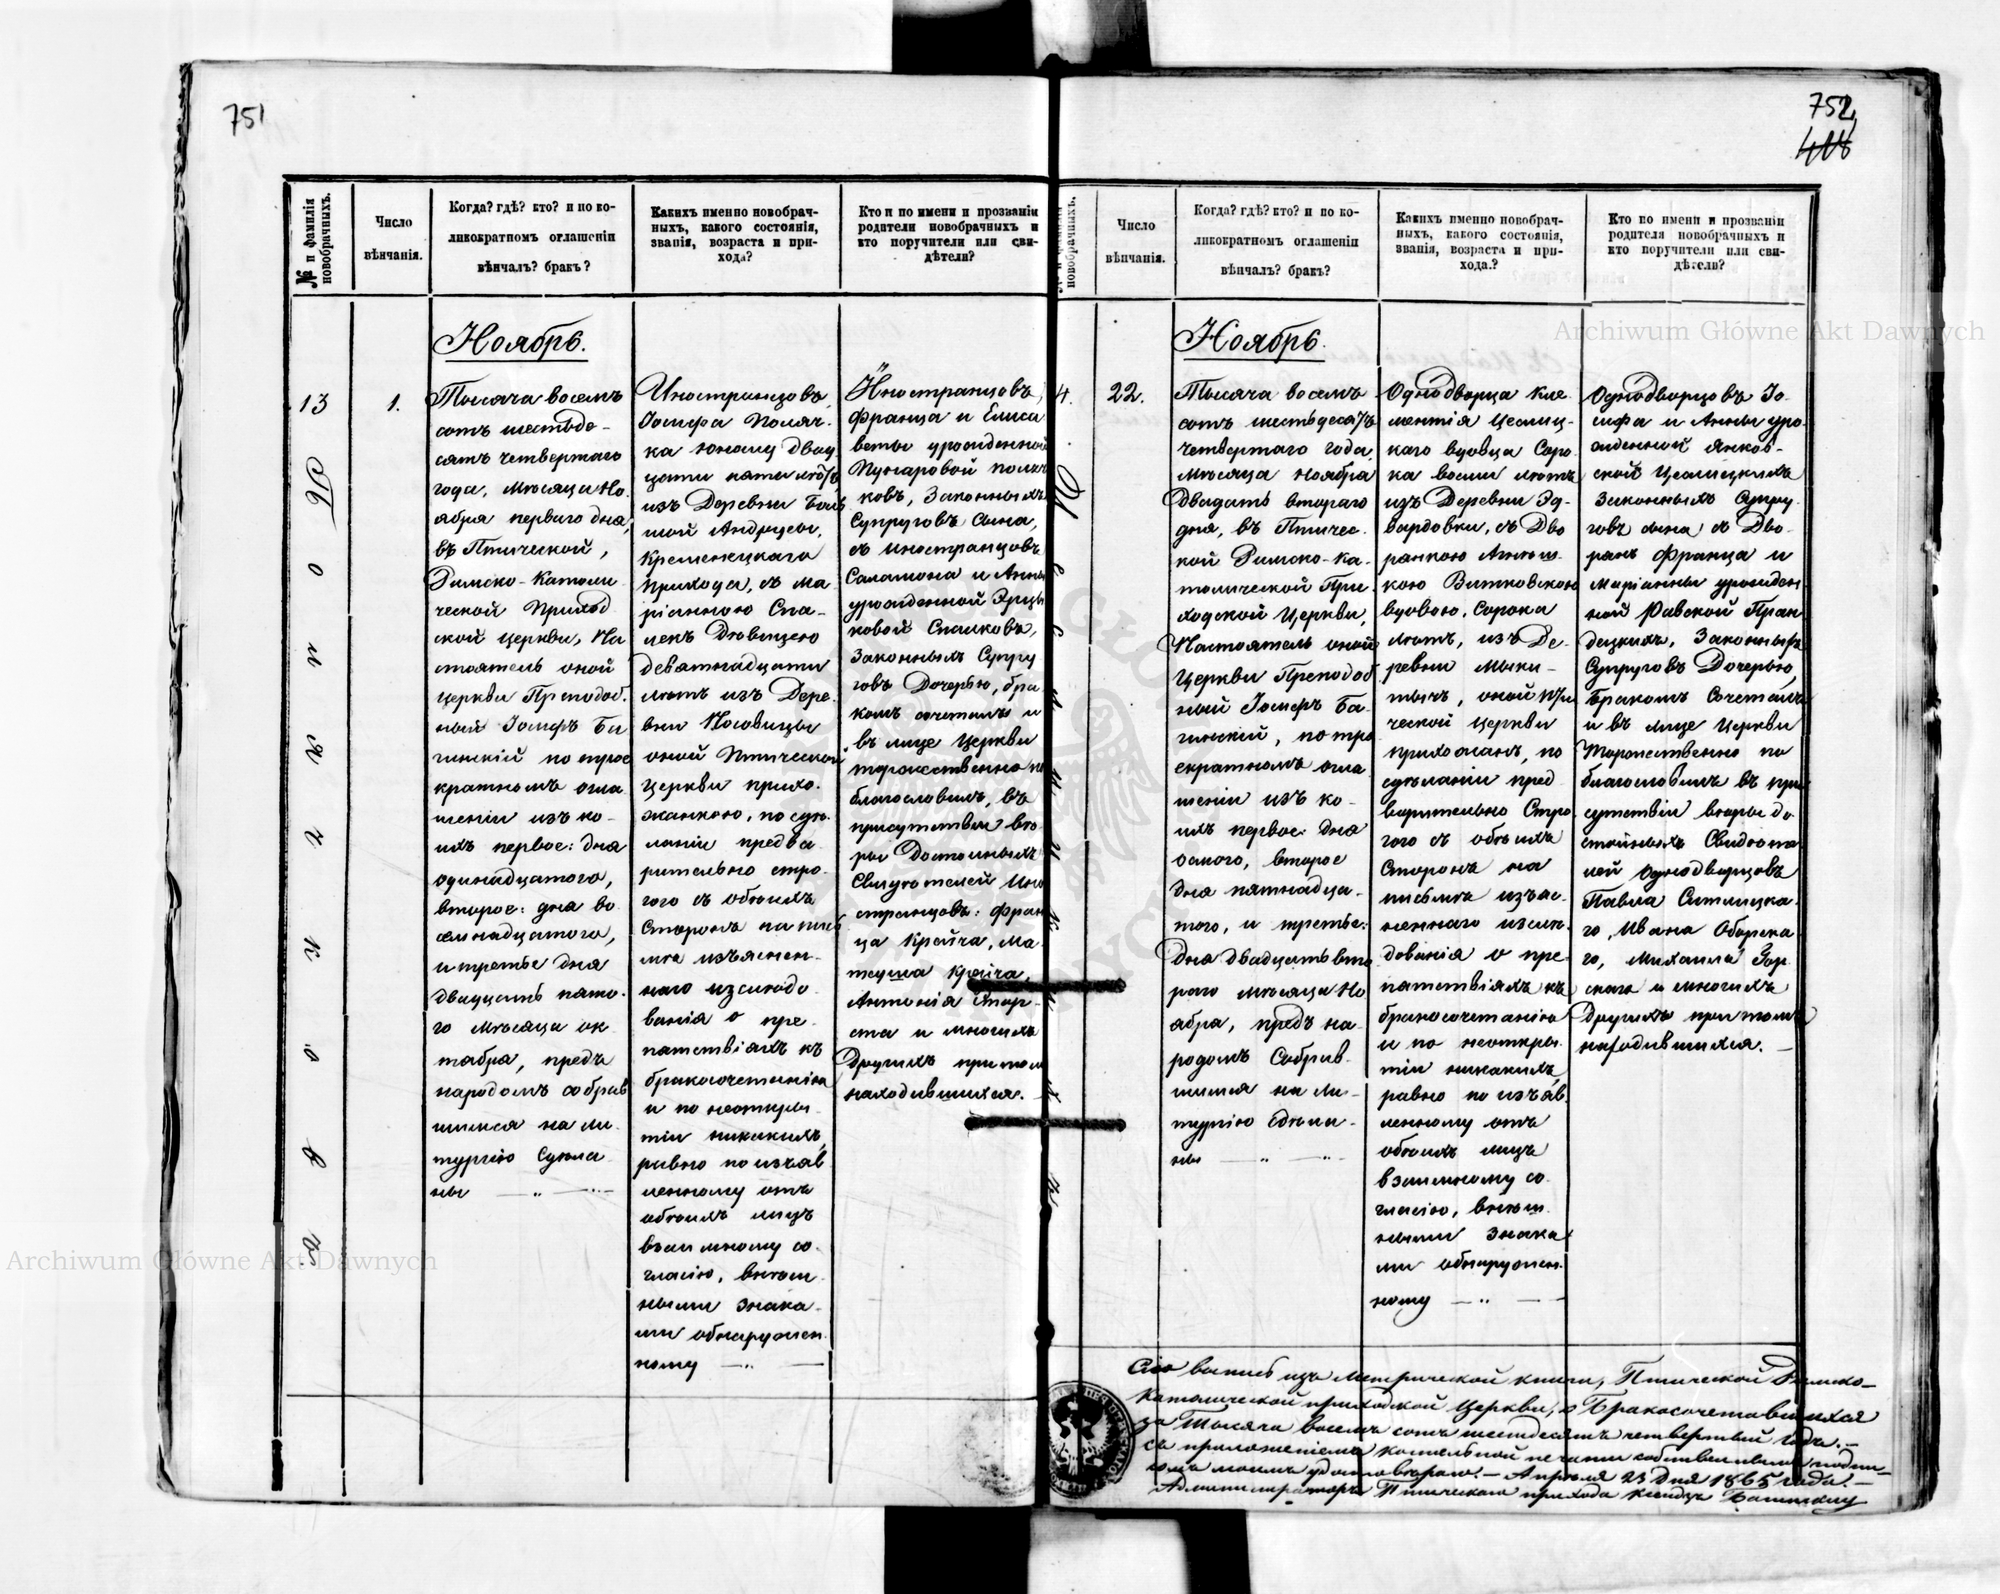 751
№ и фамилія новобрачныхъ.
Число вѣнчанія.
Когда? гдѣ? кто? и по ко-
ликократномъ оглашеніи
вѣнчалъ? бракъ?
Какихъ именно новобрач-
ныхъ, какого состоянія,
званія, возраста и при-
хода?
Кто и по имени и прозванію
родители новобрачныхъ и
кто поручители или сви-
дѣтели?
Ноябрь.
13
1.
Тысяча восемъ
сотъ шестьде-
сятъ четвертаго
года, мѣсяца Но-
ября перваго дня,
въ Птической,
Римско-Католи
ческой Приход
ской церкви, На
стоятель оной
церкви Преподоб.
ный Іосифъ Ба
гинскій по трое
кратномъ огла
шеніи изъ ко-
ихъ первое: дня
одинадцатаго,
второе: дня во
семнадцатого,
и третье дня
двадцать пято-
го мѣсяца ок-
тября, предъ
народомъ собрав
шимся на ли-
тургію сдѣла
ны
Иностранцовъ
Іосифа Поляч-
ка юному двад
цати пяти лѣтъ
изъ Деревни Боль
шой Андруги,
Кременецкаго
прихода, съ Ма
ріанною Спа-
лекъ Дѣвицею
девятнадцати
лѣтъ изъ Дере.
вни Носовицы
оной Птической
церкви прихо.
жанкою, по сдѣ
ланіи предва
рительно стро-
гого съ обоихъ
сторонъ на пись
мѣ изъяснен-
наго изслѣдо
ванія о пре-
пятствіяхъ къ
бракосочетанію
и по неоткры
тіи никакихъ,
равно по изъяв
ленному отъ
обоихъ лицъ
взаимному со-
гласію, внѣш
ними знака-
ми обнаружен
ному
Иностранцовъ,
Франца и Елиса
веты урожденной
Пунаровой Поляч
ковъ, законныхъ
супруговъ сына,
съ иностранцовъ
Саламона и Анны
урожденной
ковой Спалковъ,
законныхъ супру
говъ дочерью, бра
комъ сочеталъ и
въ лице церкви
торжественно по
благословилъ, въ
присутствіи вѣ-
ры достойныхъ
свидѣтелей ино
странцовъ: Фран
ца Крейча, Ма
теуша Крейча,
Антонія
ста и многихъ
другихъ при томъ
находившихся.
752
Число вѣнчанія.
Когда? гдѣ? кто? и по ко-
ликократномъ оглашеніи
вѣнчалъ? бракъ?
Какихъ именно новобрач-
ныхъ, какого состоянія,
званія, возраста и при-
хода.?
Кто по имени и прозванію
родителя новобрачныхъ и
кто поручители или сви-
дѣтели?
Ноябрь.
4.
22.
Тысяча восемъ
сотъ шестьдесятъ
четвертаго года,
мѣсяца ноября
двадцать втораго
дня, въ Птичес-
кой Римско-ка-
толической При
ходской Церкви,
Настоятель оной
церкви Преподоб
ный Іосифъ Ба-
гинскій, по тро
екратномъ огла
шеніи изъ ко-
ихъ первое: дня
осмого, второе
дня пятнадца-
того, и третье:
дня двадцать вто
рого мѣсяца Но
ября, предъ на-
родомъ собрав
шимся на ли-
тургію сдѣла-
ны
Однодворца Кле
ментія Целиц-
каго вдовца соро
ка восми лѣтъ
изъ Деревни Эд-
вардовки, съ дво
ранкою
кою Витковскою
вдовою, сорока
лѣтъ, изъ Де-
ревни Мыки-
тычъ, оной Пти
ческой церкви
прихожанъ, по
сдѣланіи пред
варительно стро
гого съ обоихъ
сторонъ на
письмѣ изъяс-
неннаго изслѣ-
дованія о пре-
пятствіяхъ къ
бракосочетанію
и по неоткры
тіи никакихъ
равно по изъяв
ленному отъ
обоихъ лицъ
взаимному со
гласію, внѣш
ними знака
ми обнаружен
ному
Однодворцовъ Іо-
сифа и Анны уро
жденной Янков-
ской Целицкихъ
законныхъ супру
говъ сына съ дво-
рянъ Франца и
Маріанны урожден
ной Равской
децкихъ, законныхъ
супруговъ дочерью,
бракомъ сочеталъ
и въ лице церкви
торжественно по
благословилъ въ при
сутствіи вѣры до
стойныхъ свидѣте
лей однодворцовъ
Павла
го, Ивана
го, Михаила Гор
скаго и многихъ
другихъ при томъ
находившихся.
Сію выпись изъ метрической книги, Птической Римско-
католической приходской церкви, о бракосочетавшихся
за тысяча восемъ сотъ шестдесятъ четвертый годъ.-
съ приложеніемъ костельной печати собственнымъ подпи-
сомъ моимъ удостовѣряю.- Апрѣля 23 дня 1865 года.-
Администраторъ Птическаго прихода ксендзъ Багинскій
Archiwum Główne Akt Dawnych
Archiwum Główne Akt Dawnych